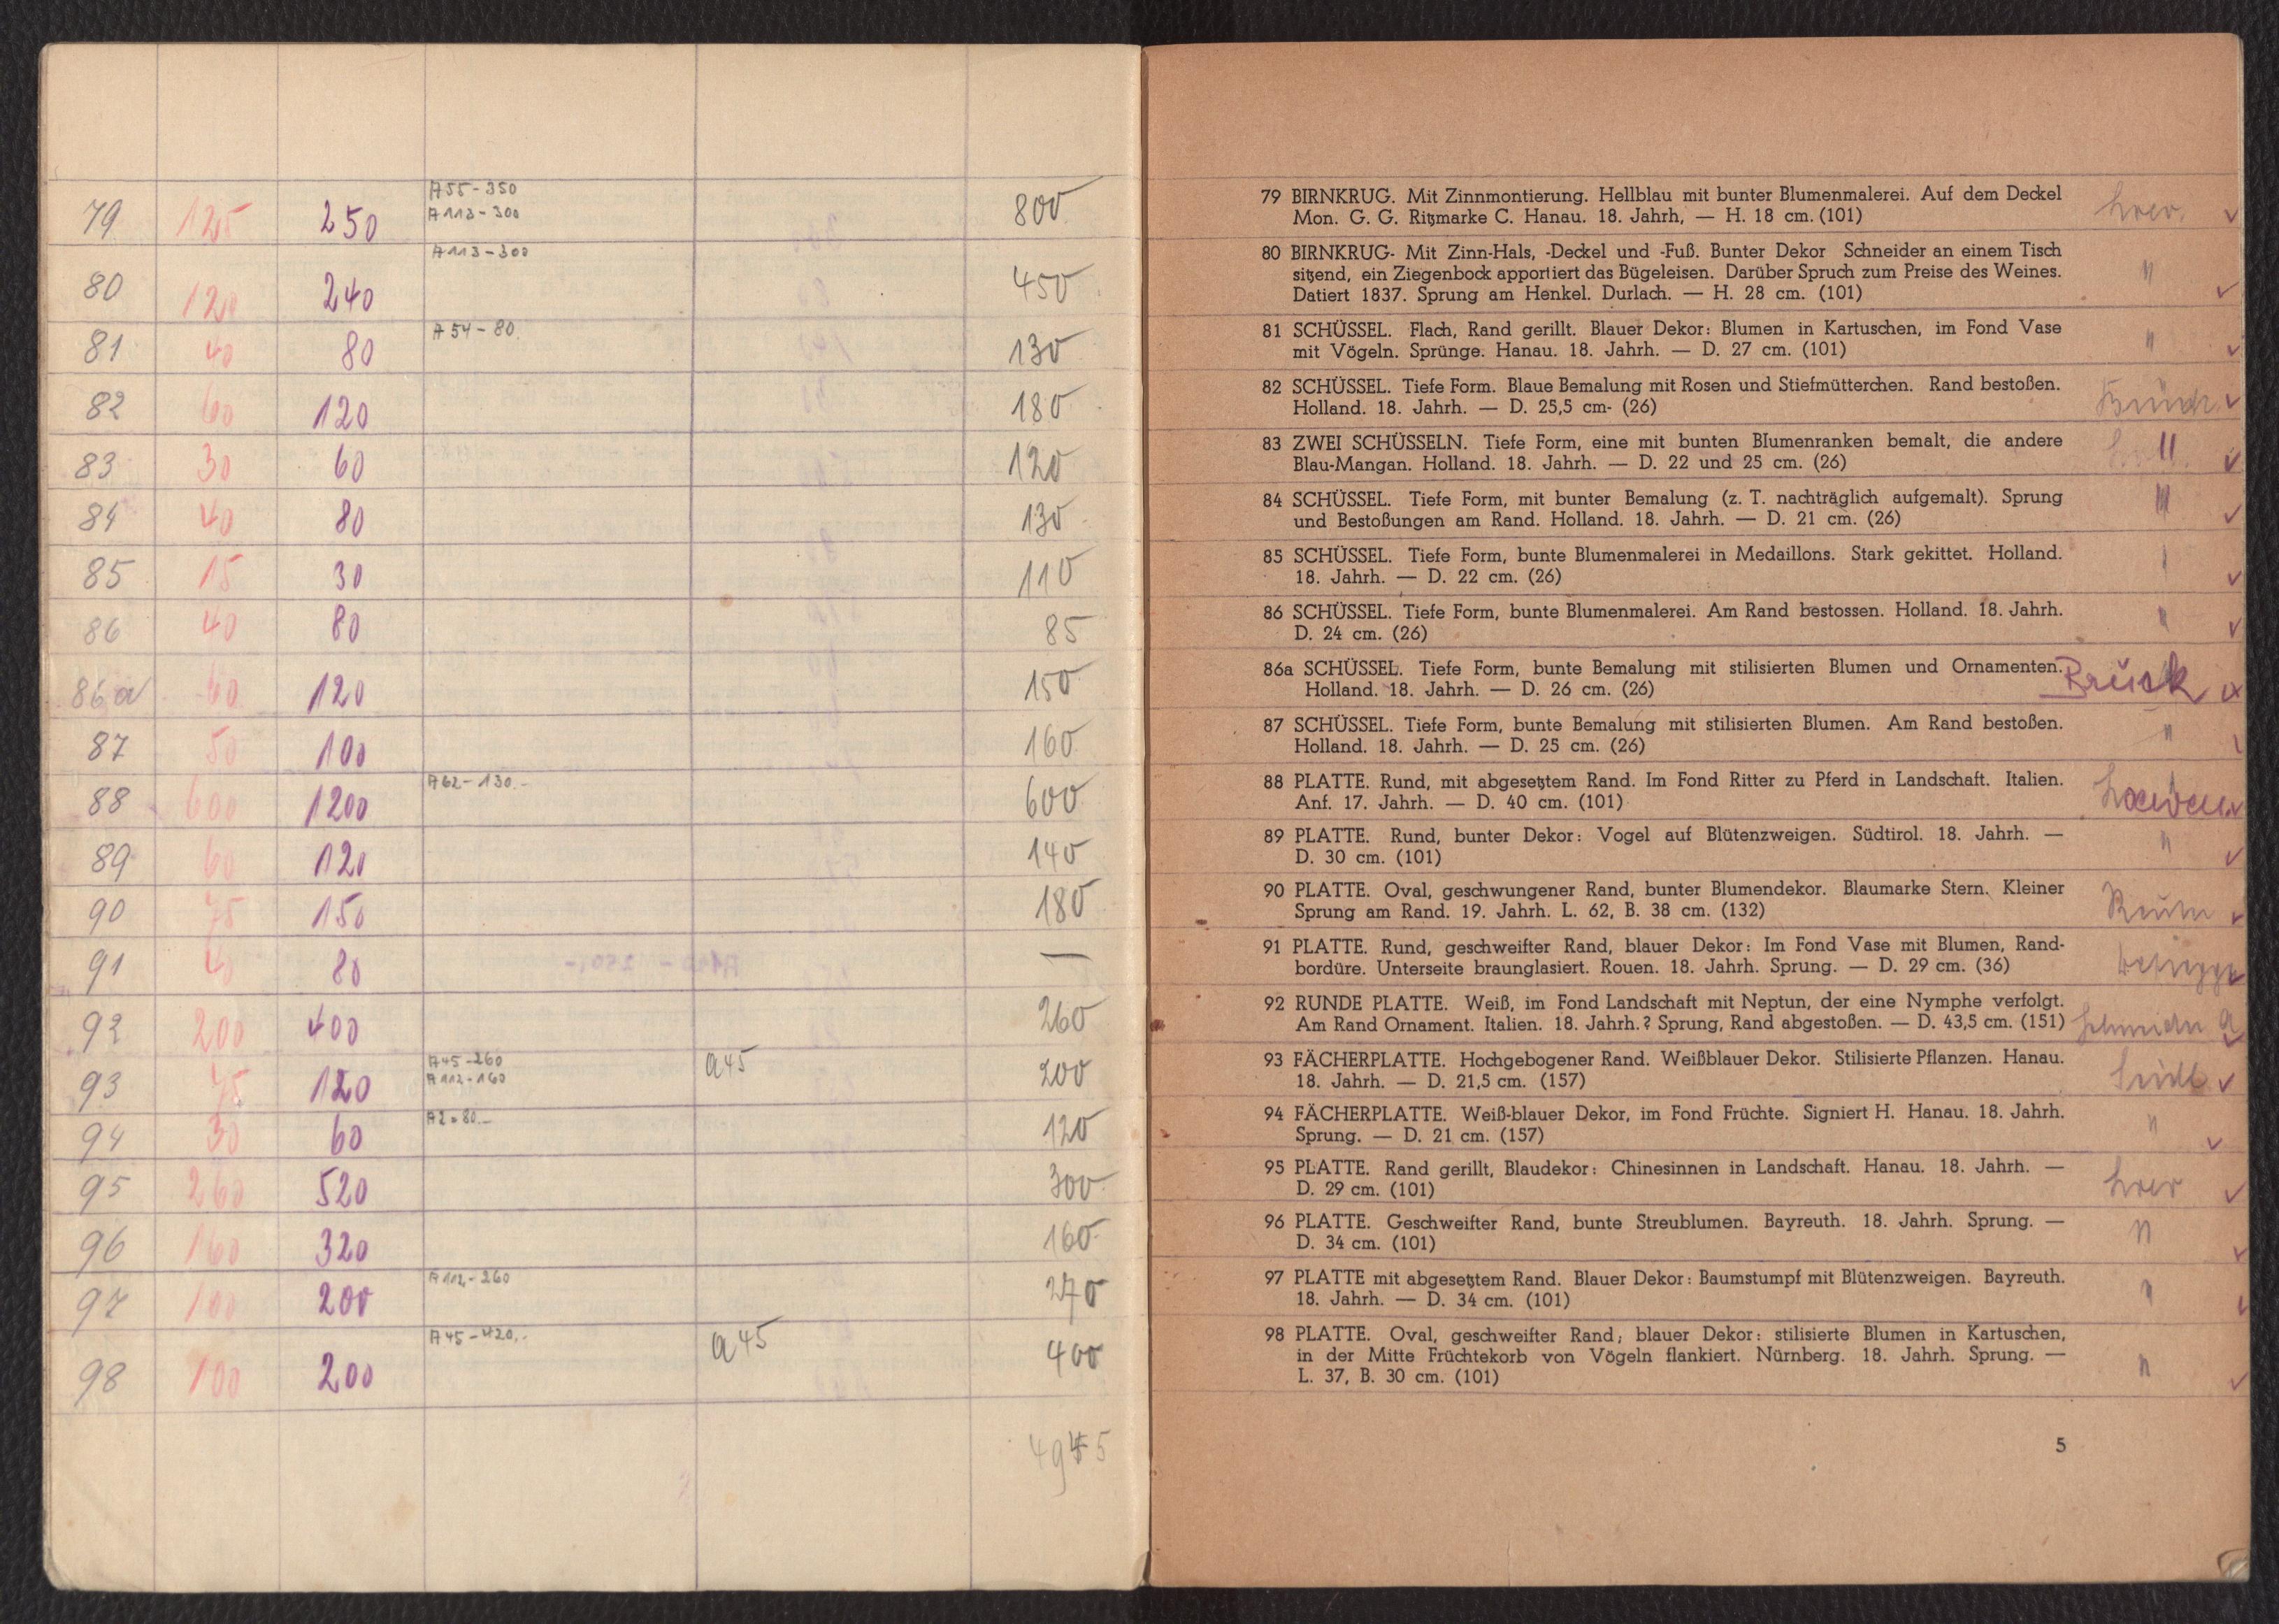 A55-350
79 125 250 A113-300 800
A113-300
80 120 240 450
81 40 80 A54-80 130
82 60 120 180
83 30 60 120
84 40 80 130
85 15 30 110
86 40 80 85
86a 60 120 150
87 50 100 160
88 600 1200 A62-130.- 600
89 60 120 140
90 75 150 180
91 40 80 —
92 200 400 260
A45-260
93 75 120 A112-160 a45 200
94 30 60 A2-80.- 120
95 260 520 300
96 160 320 160
97 100 200 A112-260 270
98 100 200 A45-420.- a45 400
79 BIRNKRUG. Mit Zinnmontierung. Hellblau mit bunter Blumenmalerei. Auf dem Deckel
Mon. G. G. Ritzmarke C. Hanau. 18. Jahrh, — H. 18 cm. (101)
80 BIRNKRUG- Mit Zinn-Hals, -Deckel und -Fuß. Bunter Dekor Schneider an einem Tisch
sitzend, ein Ziegenbock apportiert das Bügeleisen. Darüber Spruch zum Preise des Weines.
Datiert 1837. Sprung am Henkel. Durlach. — H. 28 cm. (101)
81 SCHÜSSEL. Flach, Rand gerillt. Blauer Dekor: Blumen in Kartuschen, im Fond Vase
mit Vögeln. Sprünge. Hanau. 18. Jahrh. — D. 27 cm. (101)
82 SCHÜSSEL. Tiefe Form. Blaue Bemalung mit Rosen und Stiefmütterchen. Rand bestoßen.
Holland. 18. Jahrh. — D. 25,5 cm- (26)
83 ZWEI SCHÜSSELN. Tiefe Form, eine mit bunten Blumenranken bemalt, die andere
Blau-Mangan. Holland. 18. Jahrh. — D. 22 und 25 cm. (26)
84 SCHÜSSEL. Tiefe Form, mit bunter Bemalung (z. T. nachträglich aufgemalt). Sprung
und Bestoßungen am Rand. Holland. 18. Jahrh. — D. 21 cm. (26)
85 SCHÜSSEL. Tiefe Form, bunte Blumenmalerei in Medaillons. Stark gekittet. Holland.
18. Jahrh. — D. 22 cm. (26)
86 SCHÜSSEL. Tiefe Form, bunte Blumenmalerei. Am Rand bestossen. Holland. 18. Jahrh.
D. 24 cm. (26)
86a SCHÜSSEL. Tiefe Form, bunte Bemalung mit stilisierten Blumen und Ornamenten.
Holland. 18. Jahrh. — D. 26 cm. (26)
87 SCHÜSSEL. Tiefe Form, bunte Bemalung mit stilisierten Blumen. Am Rand bestoßen.
Holland. 18. Jahrh. — D. 25 cm. (26)
88 PLATTE. Rund, mit abgesetztem Rand. Im Fond Ritter zu Pferd in Landschaft. Italien.
Anf. 17. Jahrh. — D. 40 cm. (101)
89 PLATTE. Rund, bunter Dekor: Vogel auf Blütenzweigen. Südtirol. 18. Jahrh. —
D. 30 cm. (101)
90 PLATTE. Oval, geschwungener Rand, bunter Blumendekor. Blaumarke Stern. Kleiner
Sprung am Rand. 19. Jahrh. L. 62, B. 38 cm. (132)
91 PLATTE. Rund, geschweifter Rand, blauer Dekor: Im Fond Vase mit Blumen, Rand-
bordüre. Unterseite braunglasiert. Rouen. 18. Jahrh. Sprung. — D. 29 cm. (36)
92 RUNDE PLATTE. Weiß, im Fond Landschaft mit Neptun, der eine Nymphe verfolgt.
Am Rand Ornament. Italien. 18. Jahrh.? Sprung, Rand abgestoßen. — D. 43,5 cm. (151)
93 FÄCHERPLATTE. Hochgebogener Rand. Weißblauer Dekor. Stilisierte Pflanzen. Hanau.
18. Jahrh. — D. 21,5 cm. (157)
94 FÄCHERPLATTE. Weiß-blauer Dekor, im Fond Früchte. Signiert H. Hanau. 18. Jahrh.
Sprung. — D. 21 cm. (157)
95 PLATTE. Rand gerillt, Blaudekor: Chinesinnen in Landschaft. Hanau. 18. Jahrh. —
D. 29 cm. (101)
96 PLATTE. Geschweifter Rand, bunte Streublumen. Bayreuth. 18. Jahrh. Sprung. —
D. 34 cm. (101)
97 PLATTE mit abgesetztem Rand. Blauer Dekor: Baumstumpf mit Blütenzweigen. Bayreuth.
18. Jahrh. — D. 34 cm. (101)
98 PLATTE. Oval, geschweifter Rand; blauer Dekor: stilisierte Blumen in Kartuschen,
in der Mitte Früchtekorb von Vögeln flankiert. Nürnberg. 18. Jahrh. Sprung. —
L. 37, B. 30 cm. (101)
5